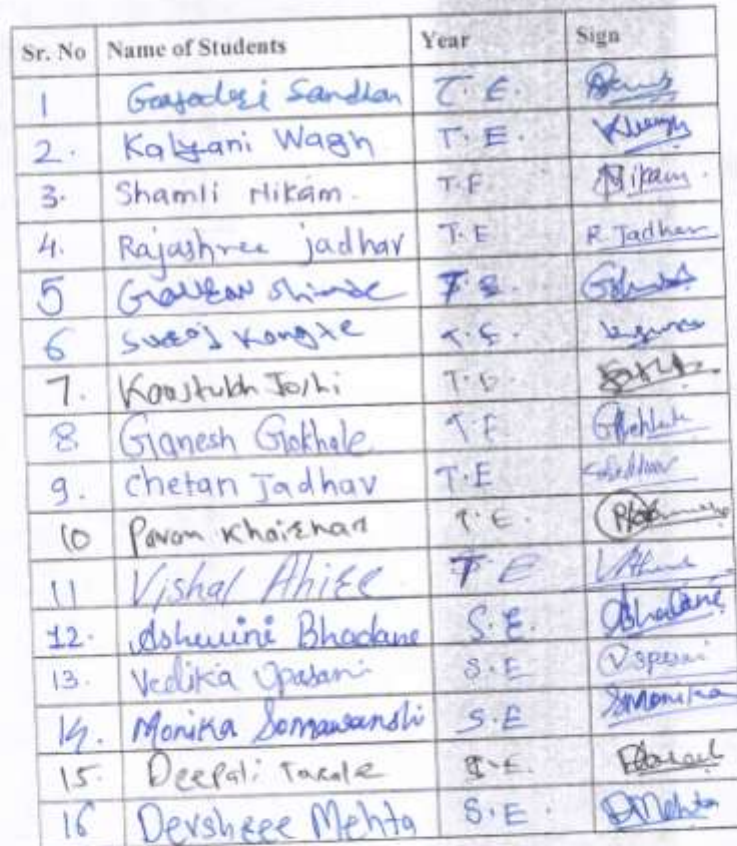 Sr. No Name of Students Year Sign
1 Sandhan T.E.
2. Kalyani Wagh T.E. KWagh
3. Shamli Nikam. T.E Nikam.
4. Rajashree jadhav T.E R. Jadhav
5 Gaurav Shinde T.E.
6 Suraj T.E.
7. Kaustubh Joshi T.E.
8. Ganesh Gokhale T.E GGokhale
9. Chetan Jadhav T.E
10 Pavan Khairnar T.E.
11 Vishal Ahire T E
12. Ashwini Bhadane S.E. Bhadane
13. Vedika Upasani S.E
14. Monika Somawanshi S.E SMonika
15. Deepali Tarale S.E.
16 Devshree Mehta S.E. DMehta